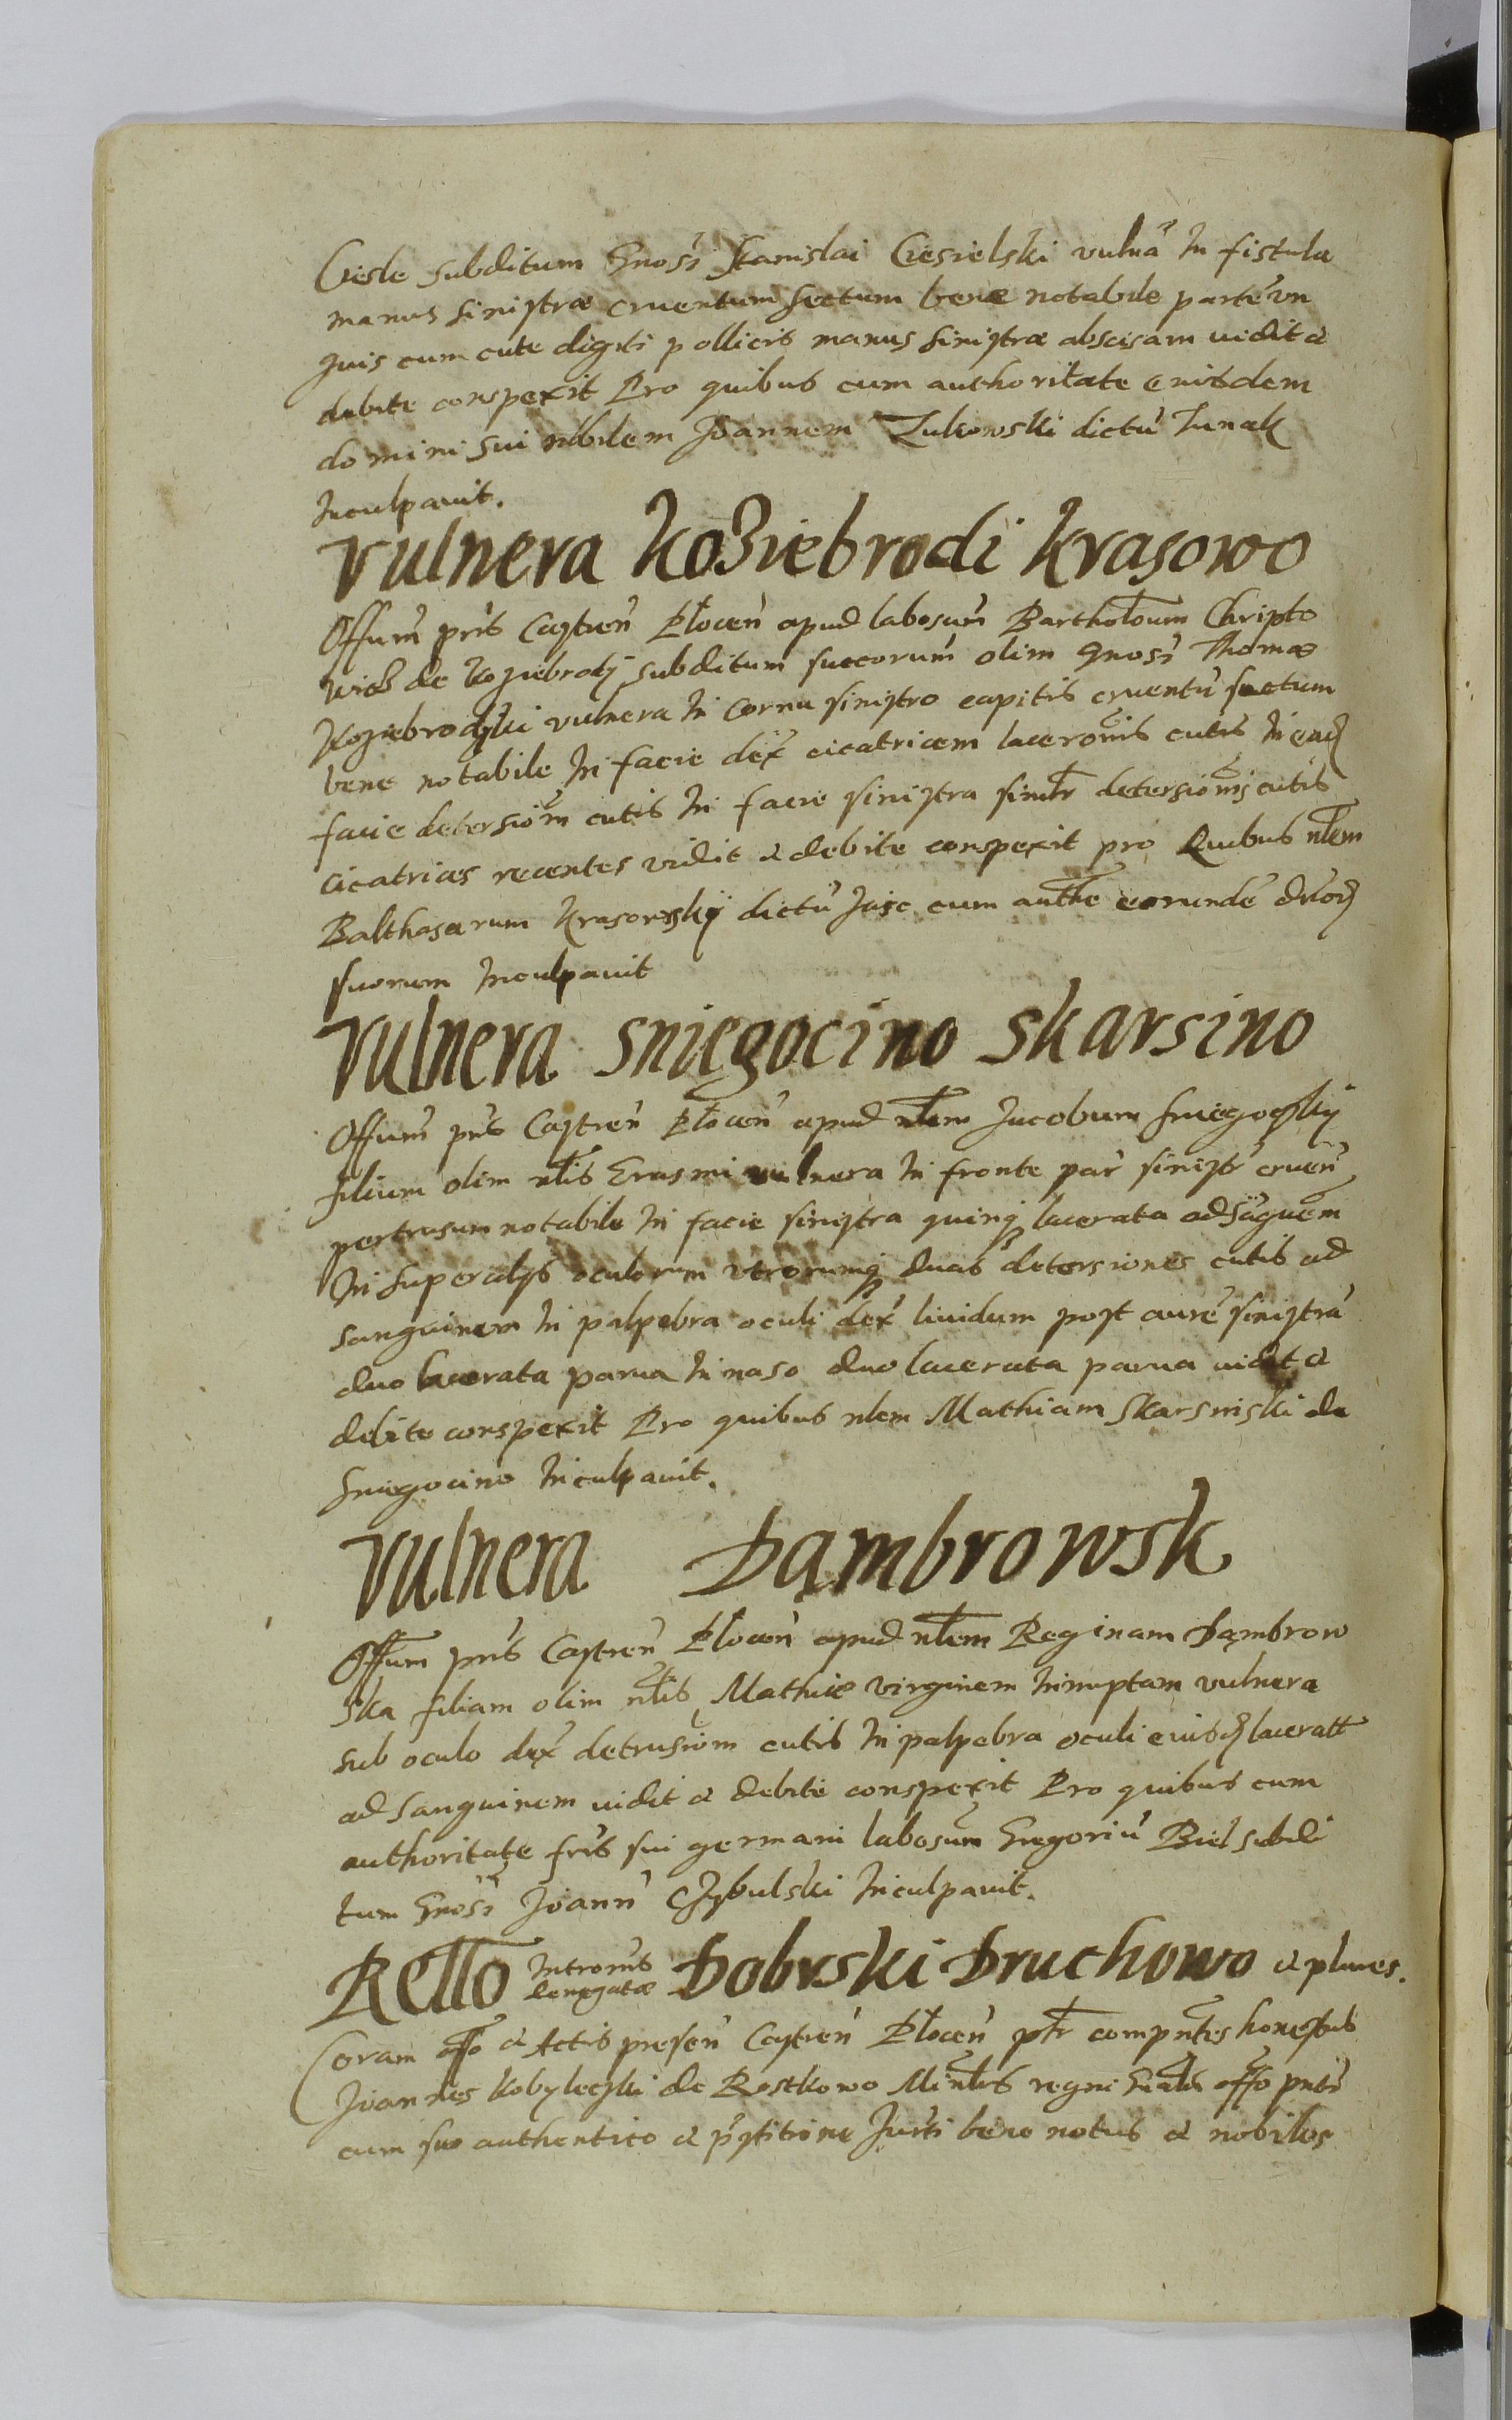 Ciesle subditum Gnosi Stanislai Ciesielski vulnā In fistula
manus sinistræ cruentum sectum bene notabile partē vn
guis cum cute digiti pollicis manus sinistræ abscisam vidit &
debite conspexit Pro quibus cum authoritate eiusdem
domini sui nobilem Joannem Zukowski dictū Junak
Inculpauit.
Vulnera Koziebrodi Krasowo
Offum pns Castren Plocen apud labosum Bartholoum Chripto
wicz de Koziebrodÿ subditum succorum olim Gnosi Thomæ
Koziebrodzki vulnera In cornu sinistro capitis cruentū sectum
bene notabile In facie dex cicatricem laceronis cutis In ead
facie detersiom cutis In facie sinistra similr detersionis cutis
cicatrices recentes vidit & debite conspexit pro Quibus nlem
Balthasarum Krasowskÿ dictū Jasc cum authe eorundē dnor
suorum Inculpauit
Vulnera Sniegocino Skarsino
Offum pns Castren Plocen apud nlem Jacobum Sniegoczkÿ
filium olim nlis Erasmi vulnera In fronte par sinistr cruen
pertusum notabile In facie sinistra quinq lacerata ad sāguēm
In supercilÿs oculorum vtrorumq duas detersiones cutis ad
sanguinem In palpebra oculi dex liuidum post aurē sinistrā
duo lacerata parua In naso duo lacerata parua vidit &
debite conspexit Pro quibus nlem Mathiam Skarsinski de
Sniegocino Inculpauit.
Vulnera Dąmbrowsk
Offum pns Castren Plocen apud nlem Reginam Dąmbrow
ska filiam olim nlis Mathiæ virginem Innuptam vulnera
sub oculo dex detrusiom cutis In palpebra oculi eiusd laceratt
ad sanguinem vidit & debite conspexit Pro quibus cum
authoritate fris sui germani labosum Gregoriū Biel subdi
tum Gnosi Joann Czybulski Inculpauit.
Rello Intromis denegatæ Dobrski Druchowo & plures.
Coram offo & Actis presen Castren Plocen pltr compntes honestus
Joannes Kobyleczki de Rostkowo Minlis regni Gnalis offo pnti
cum suo authentico & pstitione Jurti bene notus & nobiles